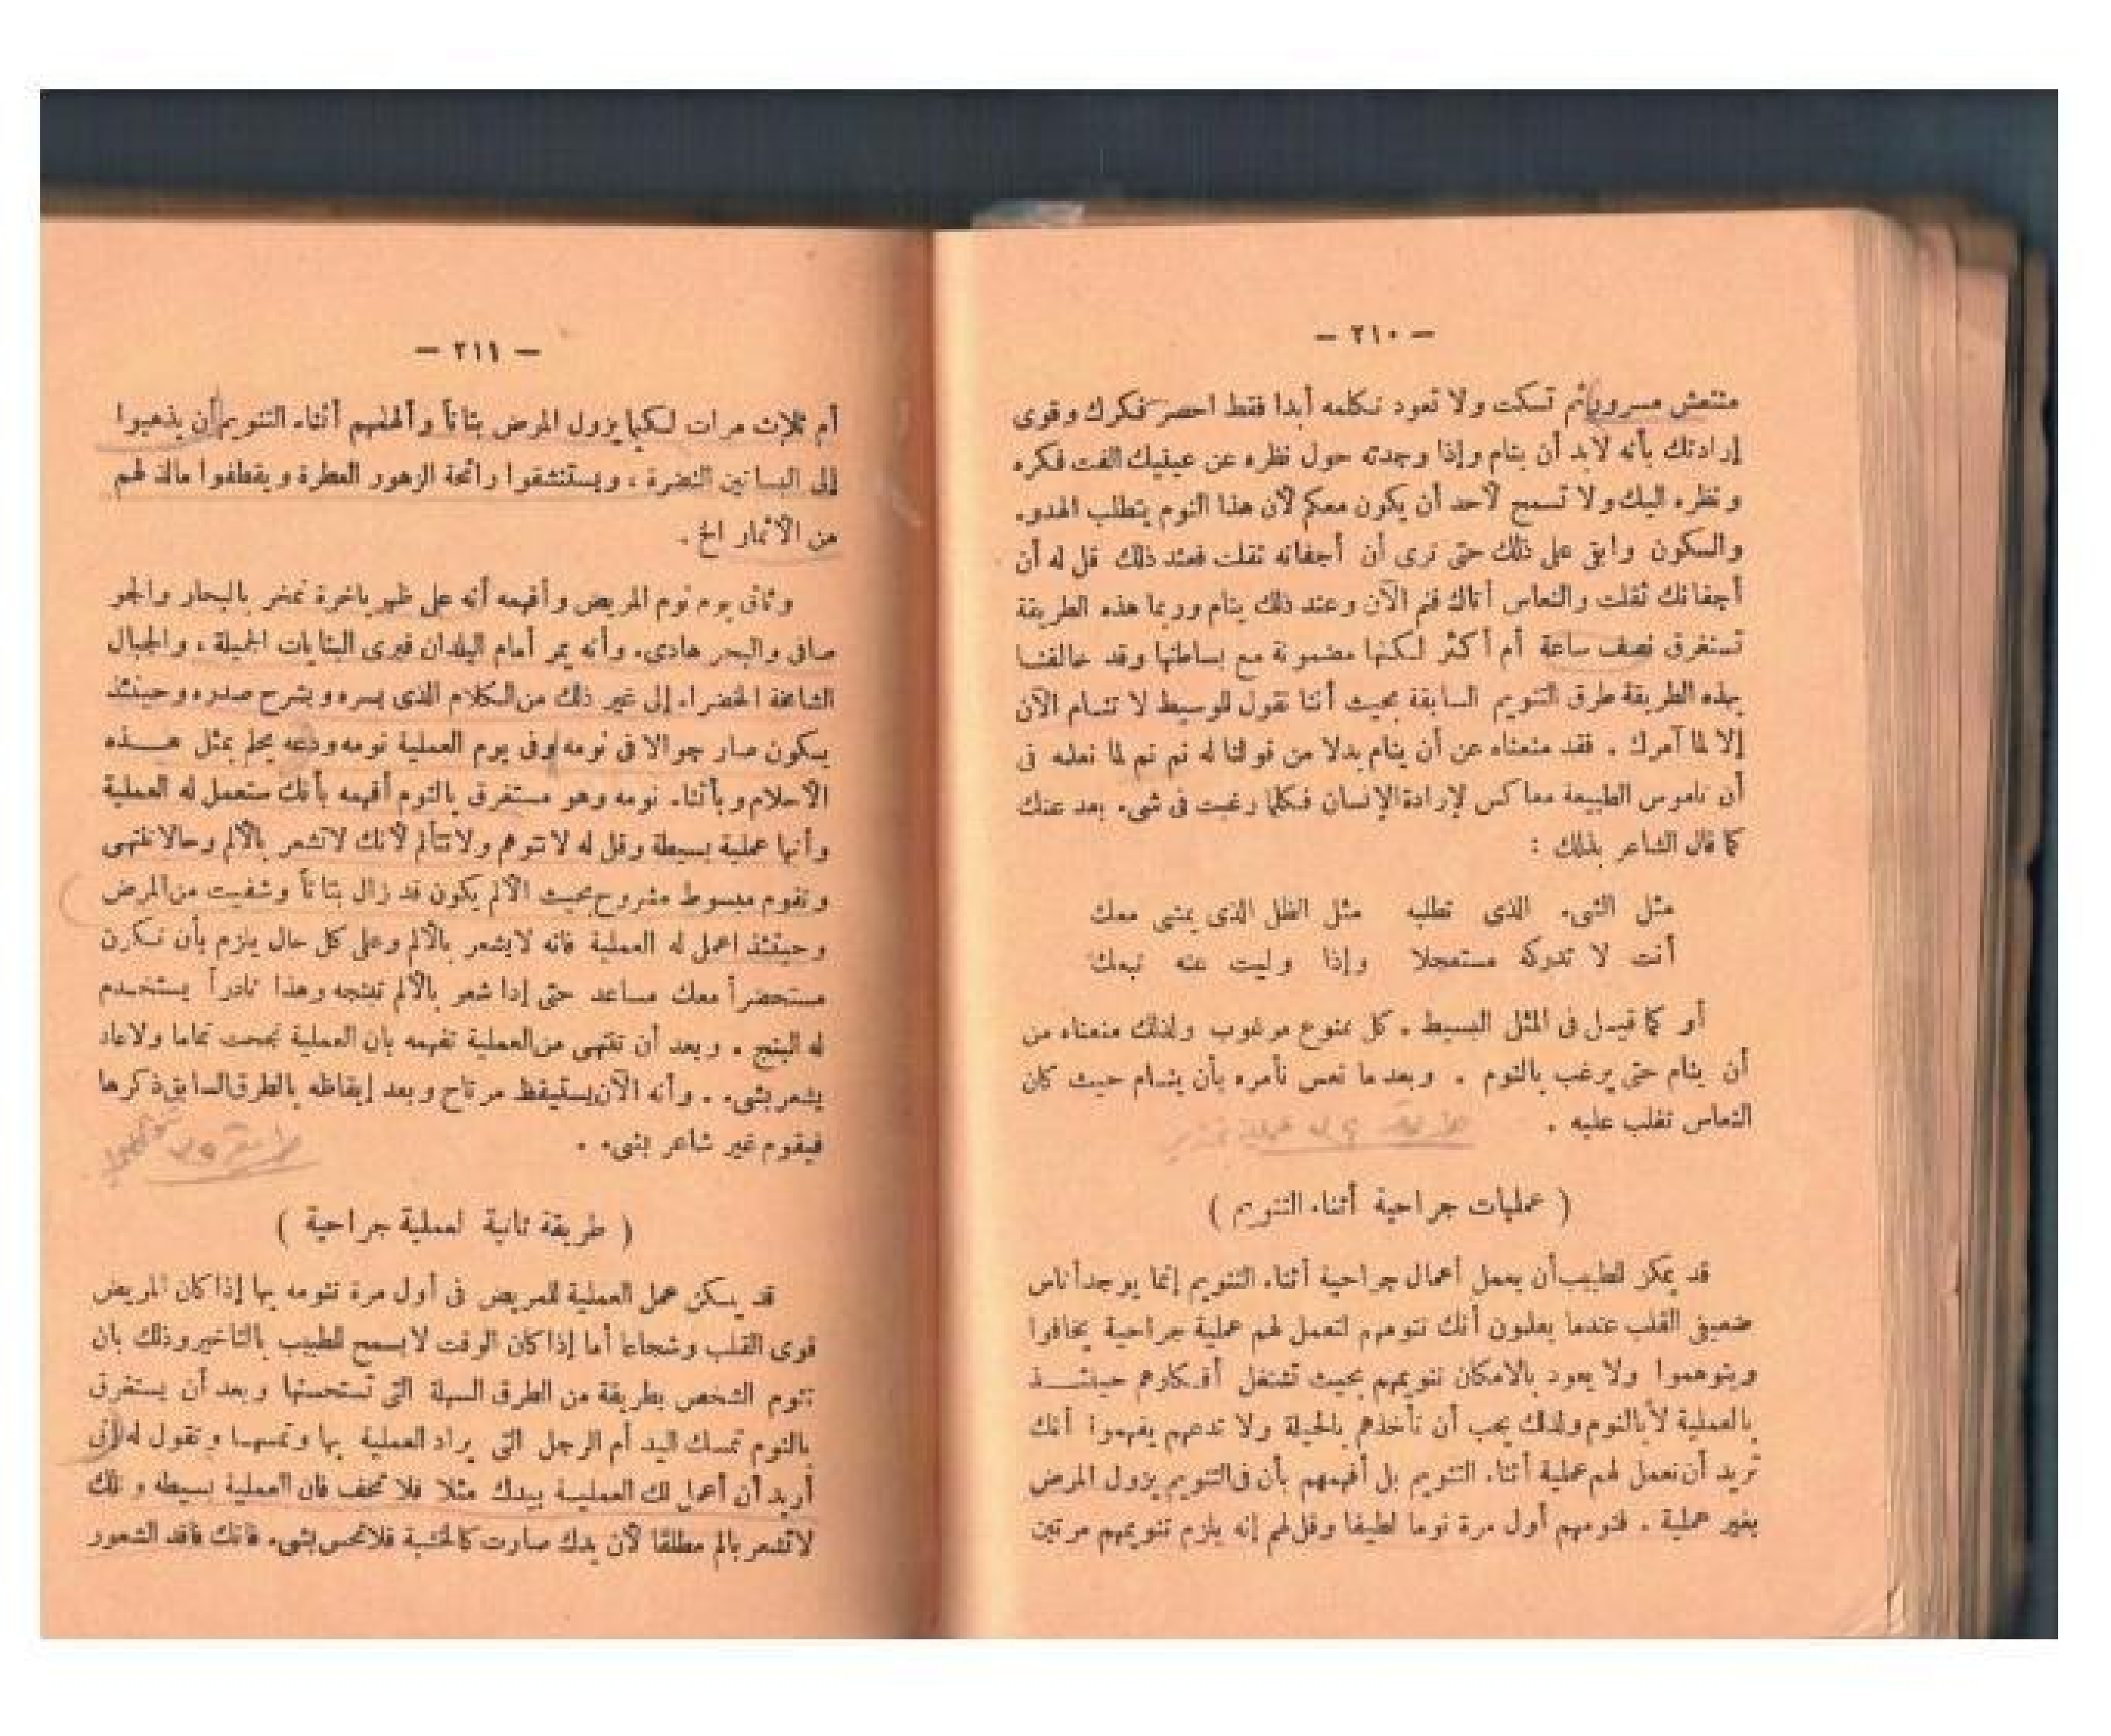 — ٢١٠ —
منتعش مسرور ثم تسكت ولا تعود تكلمه أبدا فقط احصر فكرك وقوى
إرادتك بأنه لابد أن ينام وإذا وجدته حول نظره عن عينيك الفت فكره
ونظره اليك ولا تسمح لأحد أن يكون معكم لأن هذا النوم يتطلب الهدوء
والسكون وابق على ذلك حتى ترى أن أجفانه ثقلت فعند ذلك قل له أن
أجفانك ثقلت والنعاس أتاك فنم الآن وعند ذلك ينام وربما هذه الطريقة
تستغرق نصف ساعة أم أكثر لكنها مضمونة مع بساطتها وقد خالفنا
بهذه الطريقة طرق التنويم السابقة بحيث أننا نقول للوسيط لا تنام الآن
إلا لما آمرك . فقد منعناه عن أن ينام بدلا من قولنا له نم نم لما نعلمه فى
أن ناموس الطبيعة معاكس لإرادة الإنسان فكلما رغبت فى شىء بعد عنك
كما قال الشاعر بذلك :
مثل الشىء الذى تطلبه مثل الظل الذى يمشى معك
أنت لا تدركه مستعجلا وإذا وليت عنه تبعك
أو كما قيل فى المثل البسيط . كل ممنوع مرغوب ولذلك منعناه من
أن ينام حتى يرغب بالنوم . وبعدما نعس نأمره بأن ينام حيث كان
النعاس تغلب عليه .
( عمليات جراحية أثناء التنويم )
قد يمكن للطبيب أن يعمل أعمال جراحية أثناء التنويم إنما يوجد أناس
ضعيفى القلب عندما يعلمون أنك تنومهم لتعمل لهم عملية جراحية يخافوا
ويتوهموا ولا يعود بالامكان تنويمهم بحيث تشتغل أفكارهم حينئذ
بالعملية لا بالنوم ولذلك يجب أن تأخذهم بالحيلة ولا تدعهم يفهموا أنك
تريد أن تعمل لهم عملية أثناء التنويم بل أفهمهم بأن فى التنويم يزول المرض
بغير عملية . فنومهم أول مرة نوما لطيفا وقل لهم إنه يلزم تنويمهم مرتين
— ٢١١ —
أم ثلاث مرات لكيما يزول المرض بتاتاً وأفهمهم أثناء التنويم أن يذهبوا
إلى البساتين النضرة ، ويستنشقوا رائحة الزهور العطرة ويقطفوا مالذ لهم
من الأثمار الخ .
وثانى يوم نوم المريض وأفهمه أنه على ظهر باخرة تمخر بالبحار والجو
صافى والبحر هادىء وأنه يمر أمام البلدان فيرى البنايات الجميلة ، والجبال
الشامخة الخضراء إلى غير ذلك من الكلام الذى يسره ويشرح صدره وحينئذ
يكون صار جوالا فى نومه وفى يوم العملية نومه ودعه يحلم بمثل هذه
الأحلام وبأثناء نومه وهو مستغرق بالنوم أفهمه بأنك ستعمل له العملية
وأنها عملية بسيطة وقل له لا تتوهم ولا تتألم لأنك لا تشعر بالألم وحالا تنتهى
وتقوم مبسوط مشروح بحيث الألم يكون قد زال بتاتاً وشفيت من المرض
وحينئذ اعمل له العملية فانه لا يشعر بالألم وعلى كل حال يلزم بأن تكون
مستحضراً معك مساعد حتى إذا شعر بالألم تبنجه وهذا نادراً يستخدم
له البنج . وبعد أن تنتهى من العملية تفهمه بان العملية نجحت تماما ولا عاد
يشعر بشىء . وأنه الآن يستيقظ مرتاح وبعد إيقاظه بالطرق السابق ذكرها
فيقوم غير شاعر بشىء .
( طريقة ثانية لعملية جراحية )
قد يمكن عمل العملية للمريض فى أول مرة تنومه بها إذا كان المريض
قوى القلب وشجاعا أما إذا كان الوقت لا يسمح للطبيب بالتاخير وذلك بان
تنوم الشخص بطريقة من الطرق السهلة التى تستحسنها وبعد أن يستغرق
بالنوم تمسك اليد أم الرجل التى يراد العملية بها وتمسها وتقول له إنى
أريد أن أعمل لك العملية بيدك مثلا فلا تخف فان العملية بسيطه و
لا تشعر بالم مطلقا لأن يدك صارت كالخشبة فلا تحس بشىء فانك فاقد الشعور